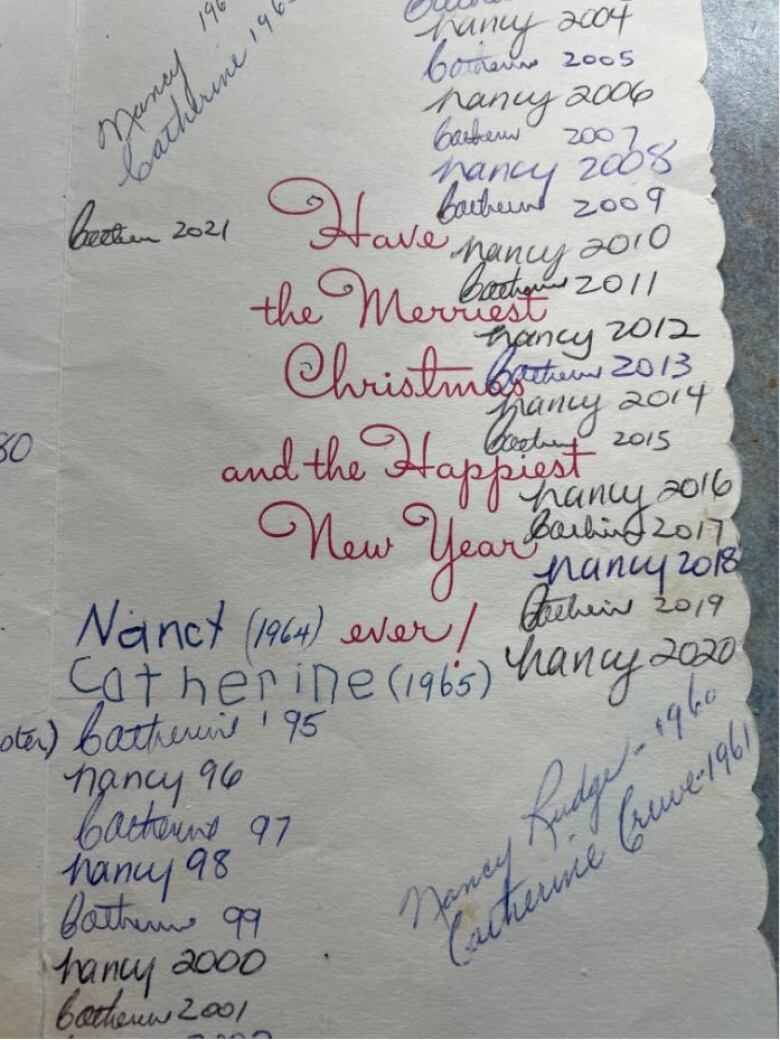 Nancy 196
Catherine 196
nancy 2004
Catherine 2005
nancy 2006
Catherine 2007
nancy 2008
Catherine 2009
nancy 2010
Catherine 2011
nancy 2012
Catherine 2013
nancy 2014
Catherine 2015
nancy 2016
Catherine 2017
nancy 2018
Catherine 2019
nancy 2020
Catherine 2021
Have
the Merriest
Christmas
and the Happiest
New Year
ever!
80
Nancy (1964)
Catherine (1965)
Catherine '95
nancy 96
Catherine 97
nancy 98
Catherine 99
nancy 2000
Catherine 2001
Nancy Rudge - 1960
Catherine Crewe - 1961